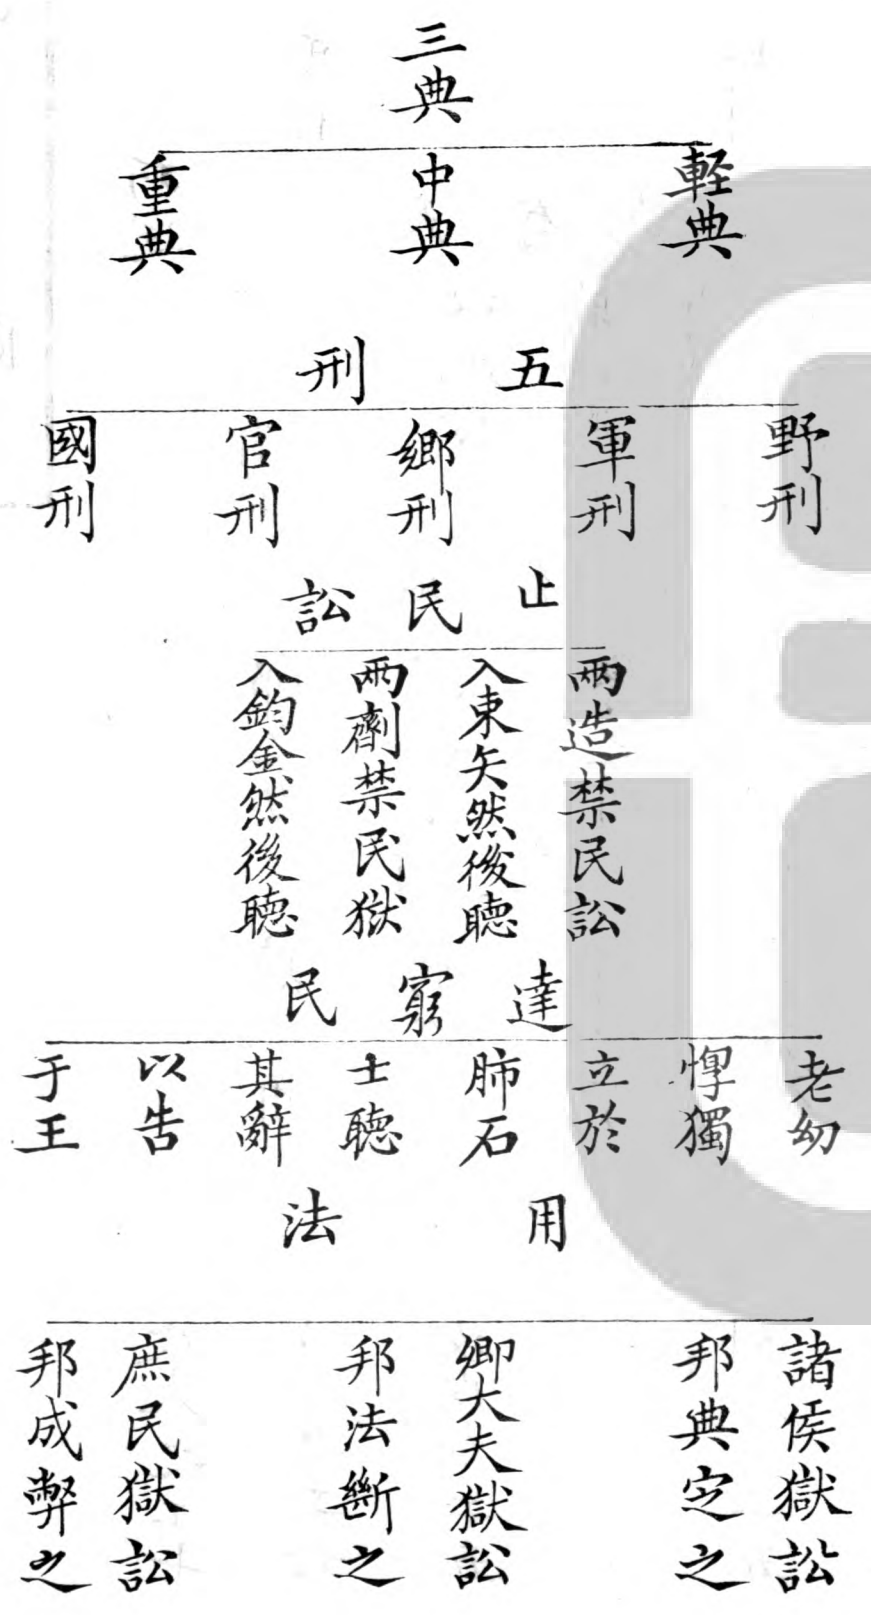 三典
輕典
中典
重典
五刑
野刑
軍刑
鄉刑
官刑
國刑
止民訟
兩造禁民訟
入東矢然後聽
兩劑禁民獄
入鈞金然後聽
達窮民
老幼
惸獨
立於
肺石
士聽
其辭
以告
于王
用法
諸侯獄訟
邦典定之
卿大夫獄訟
邦法斷之
庶民獄訟
邦成弊之